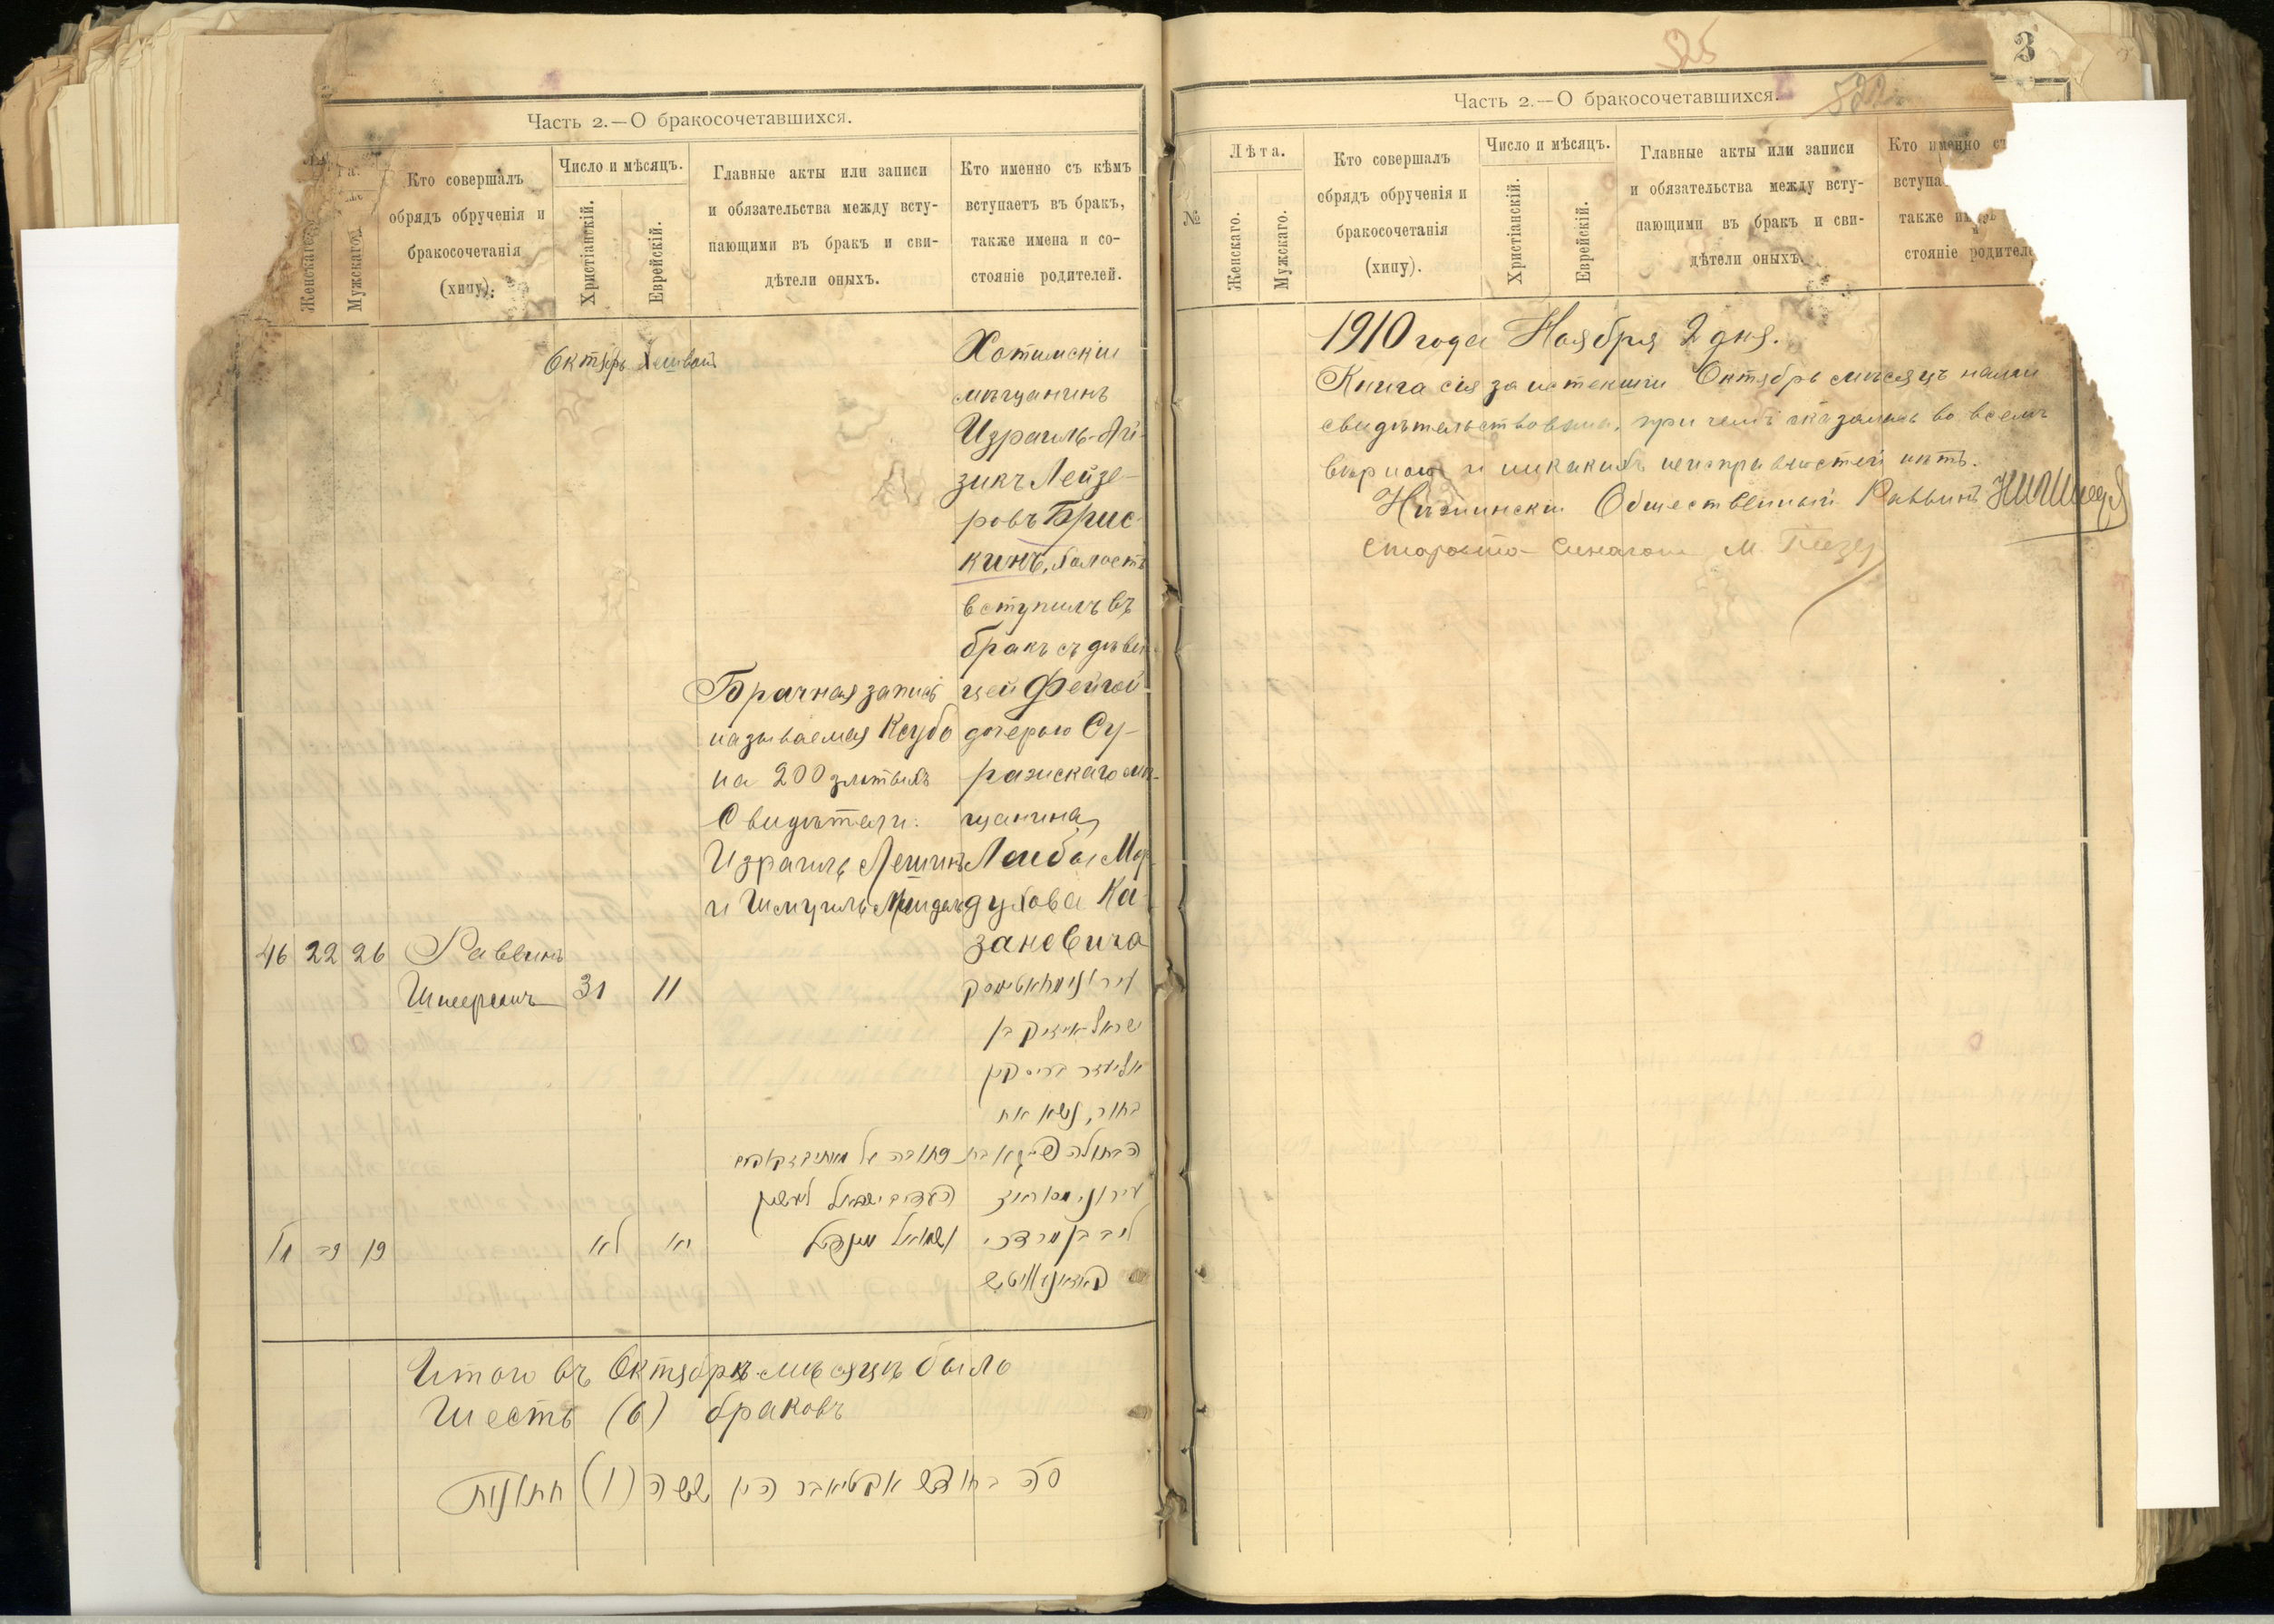 Часть 2.—О бракосочетавшихся.
Женскаго.
Мужскаго.
Кто совершалъ
обрядъ обрученія и
бракосочетанія
(хипу).
Число и мѣсяцъ.
Христіанскій.
Еврейскій.
Главные акты или записи
и обязательства между всту-
пающими въ бракъ и сви-
дѣтели оныхъ.
Кто именно съ кѣмъ
вступаетъ въ бракъ,
также имена и со-
стояніе родителей.
Октябрь Хешвон
Хотимскій
мѣщанинъ
Израиль-Ай-
зикъ Лейзе-
ровъ Брис-
кинъ, холостъ
вступилъ въ
бракъ съ дѣви-
цей Фейгой
дочерью Су-
ражскаго мѣ-
щанина
Лейбы Мор-
духова Ка-
заневича
Брачная запись
называемая Ксубо
на 200 злотыхъ
Свидѣтели:
Израиль
и Шмуиль
46 22 26 Раввинъ
31 11
עירוני
ישראל אייזיק בן
אליעזר בריסקין
בחור, נשא את
הבתולה פייגא בת
עירוני
ליב בן מרדכי
כתובה על
העדים ישראל
ושמואל
לא יא
Итого въ Октябрѣ мѣсяцѣ было
Шесть (6) браковъ
סה בחודש אקטיאבר היו ששה (ו) חתונות
3
Часть 2.—О бракосочетавшихся.
№
Лѣта.
Женскаго.
Мужскаго.
Кто совершалъ
обрядъ обрученія и
бракосочетанія
(хипу).
Число и мѣсяцъ.
Христіанскій.
Еврейскій.
Главные акты или записи
и обязательства между всту-
пающими въ бракъ и сви-
дѣтели оныхъ.
Кто именно съ
вступа
также
стояніе родителе
1910 года Ноября 2 дня.
Книга сія за истекшій Октябрь мѣсяцъ нами
свидѣтельствована, при чемъ оказалась во всемъ
вѣрною и никакихъ неисправностей нѣтъ.
Нѣжинскій Общественный Раввинъ
Староста Синагоги М.